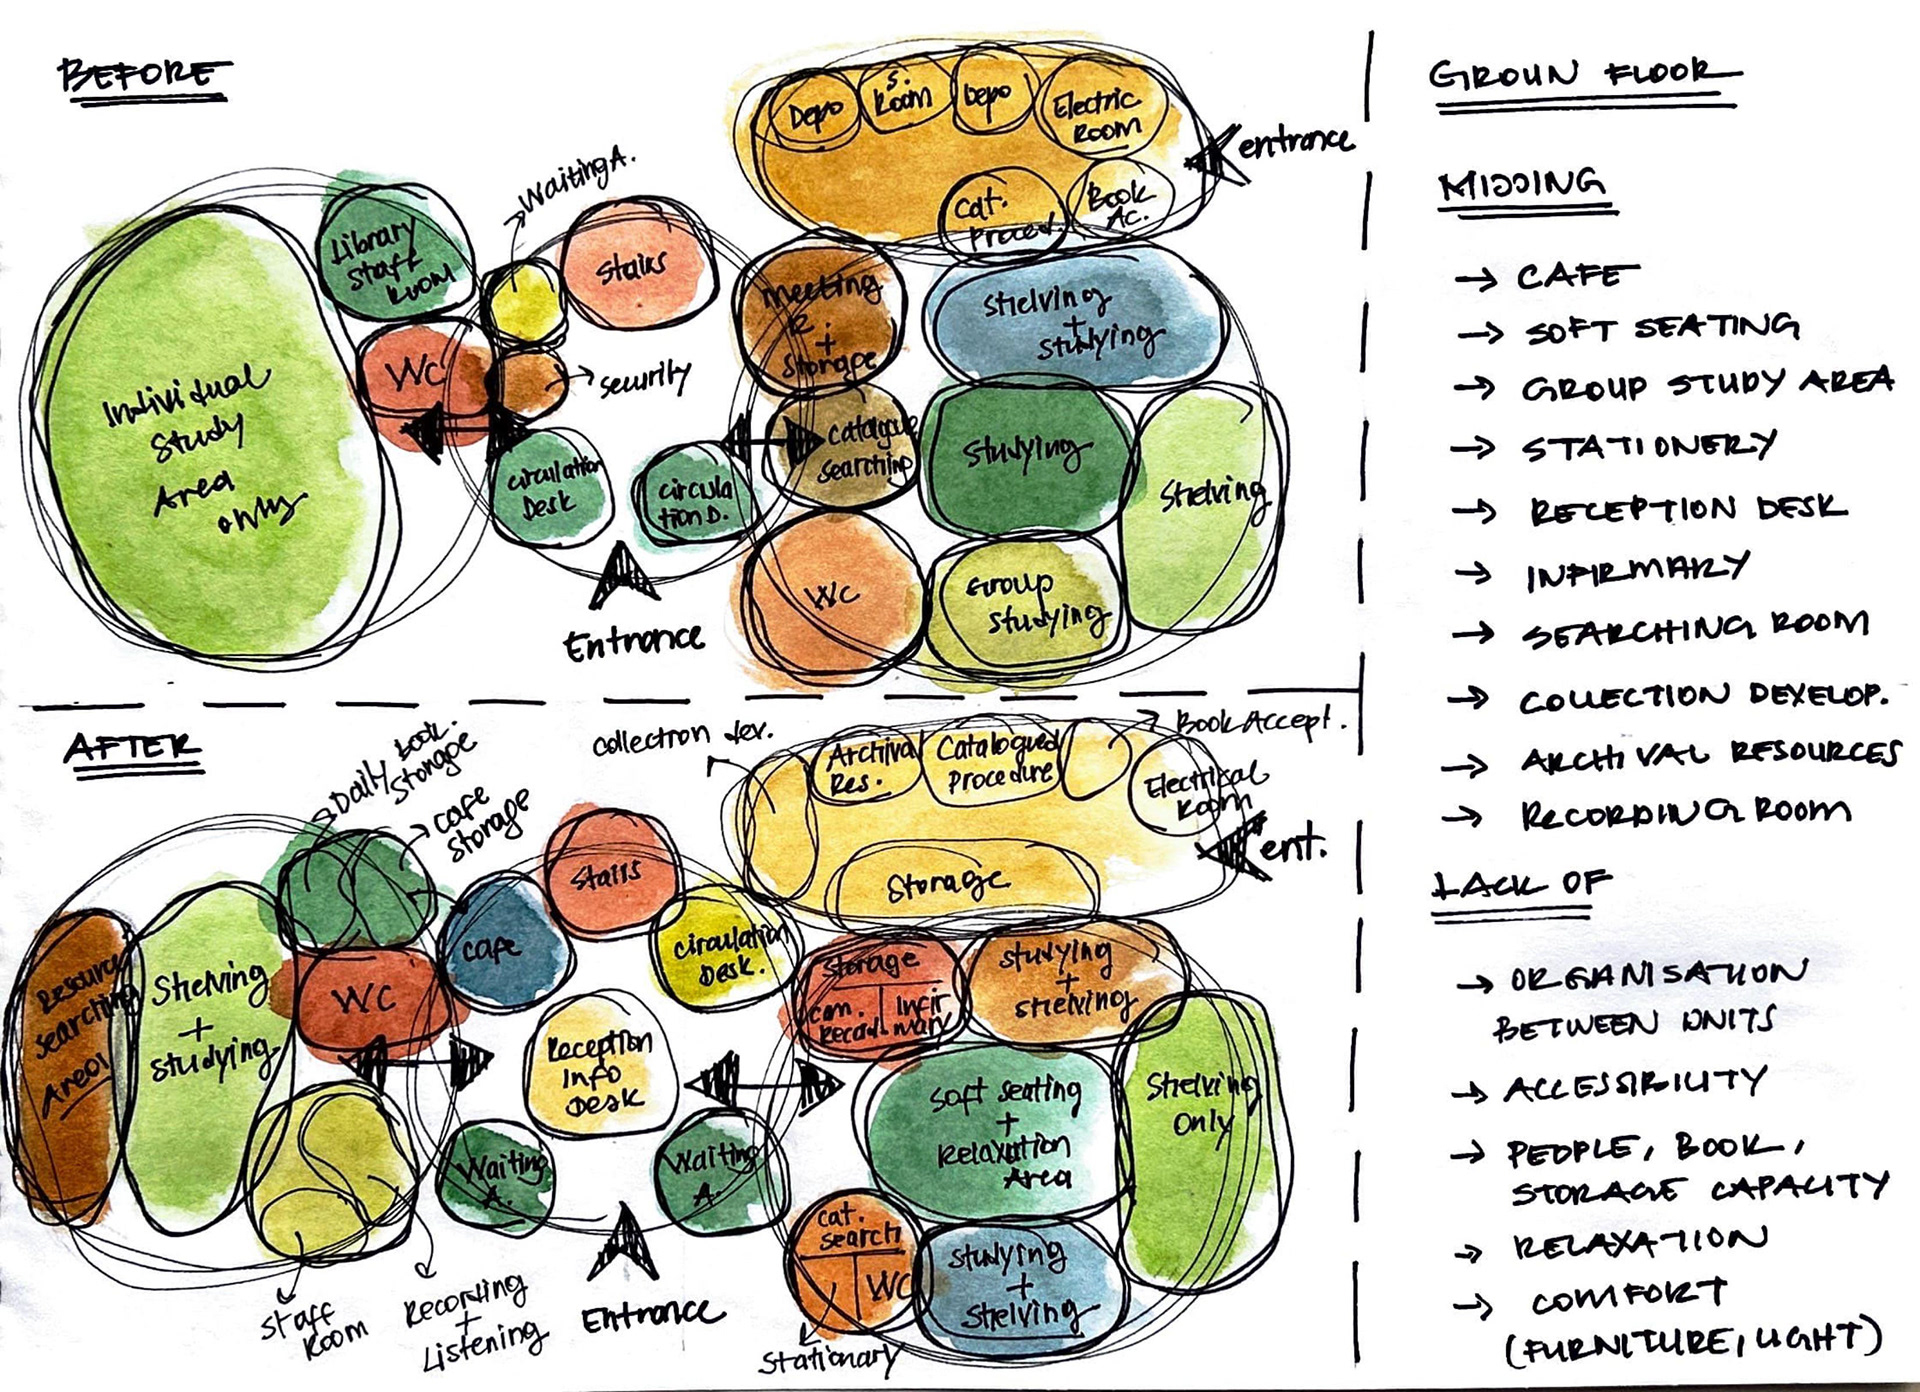 BEFORE
Depo
S.
Room
Depo
Electric
Room
entrance
Cat.
Proced.
Book
Ac.
Waiting A.
Library
Staff
Room
Stairs
Individual
Study
Area
only
WC
security
Meeting
R.
+
Storage
Shelving
+
Studying
catalogue
searching
Studying
Shelving
circulation
Desk
circula
tion D.
WC
Group
Studying
Entrance
AFTER
Daily book.
Storage
cafe
Storage
collection dev.
Archival
Res.
Catalogued
Procedure
Book Accept.
Electrical
Room
ent.
Storage
Stairs
cafe
circulation
Desk.
Resource
searching
Area
Shelving
+
Studying
WC
Reception
Info
Desk
Storage
Com.
Record.
Infir
mary
Studying
+
Shelving
Soft seating
+
Relaxation
Area
Shelving
Only
Waiting
A.
Waiting
A.
Cat.
search
WC
Studying
+
Shelving
Staff
Room
Recording
+
Listening
Entrance
Stationary
GROUN FLOOR
MISSING
→ CAFE
→ SOFT SEATING
→ GROUP STUDY AREA
→ STATIONERY
→ RECEPTION DESK
→ INFIRMARY
→ SEARCHING ROOM
→ COLLECTION DEVELOP.
→ ARCHIVAL RESOURCES
→ RECORDING ROOM
LACK OF
→ ORGANISATION
BETWEEN UNITS
→ ACCESSIBILITY
→ PEOPLE, BOOK,
STORAGE CAPACITY
→ RELAXATION
→ COMFORT
(FURNITURE, LIGHT)